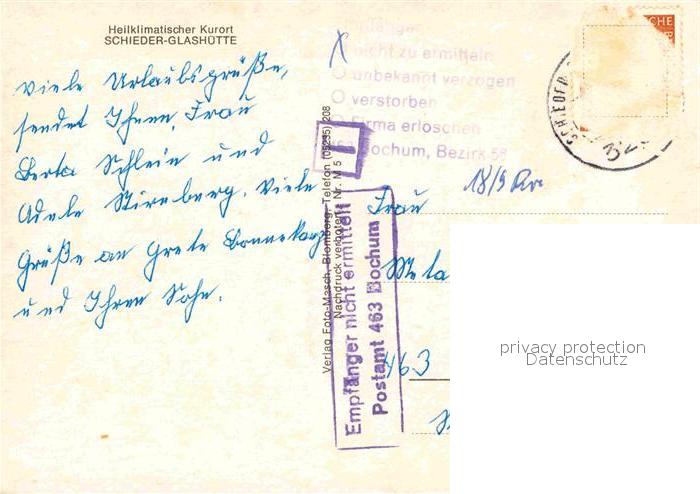 Heilklimatischer Kurort
SCHIEDER-GLASHÜTTE
Viele Urlaubsgrüße,
sendet Ihnen, Frau
Berta Schlein und
Adele Stirnberg. Viele
Grüße an Grete
und Ihren Sohn.
Verlag Foto-Masch, Blomberg, Telefon (05235) 208
Nachdruck verboten Nr. M 5
X
Empfänger
nicht zu ermitteln
O unbekannt verzogen
O verstorben
O Firma erloschen
Bochum, Bezirk 58
Empfänger nicht ermittelt
Postamt 463 Bochum
SCHIEDER
CHE
18/9
Frau
Meta
463
privacy protection
Datenschutz